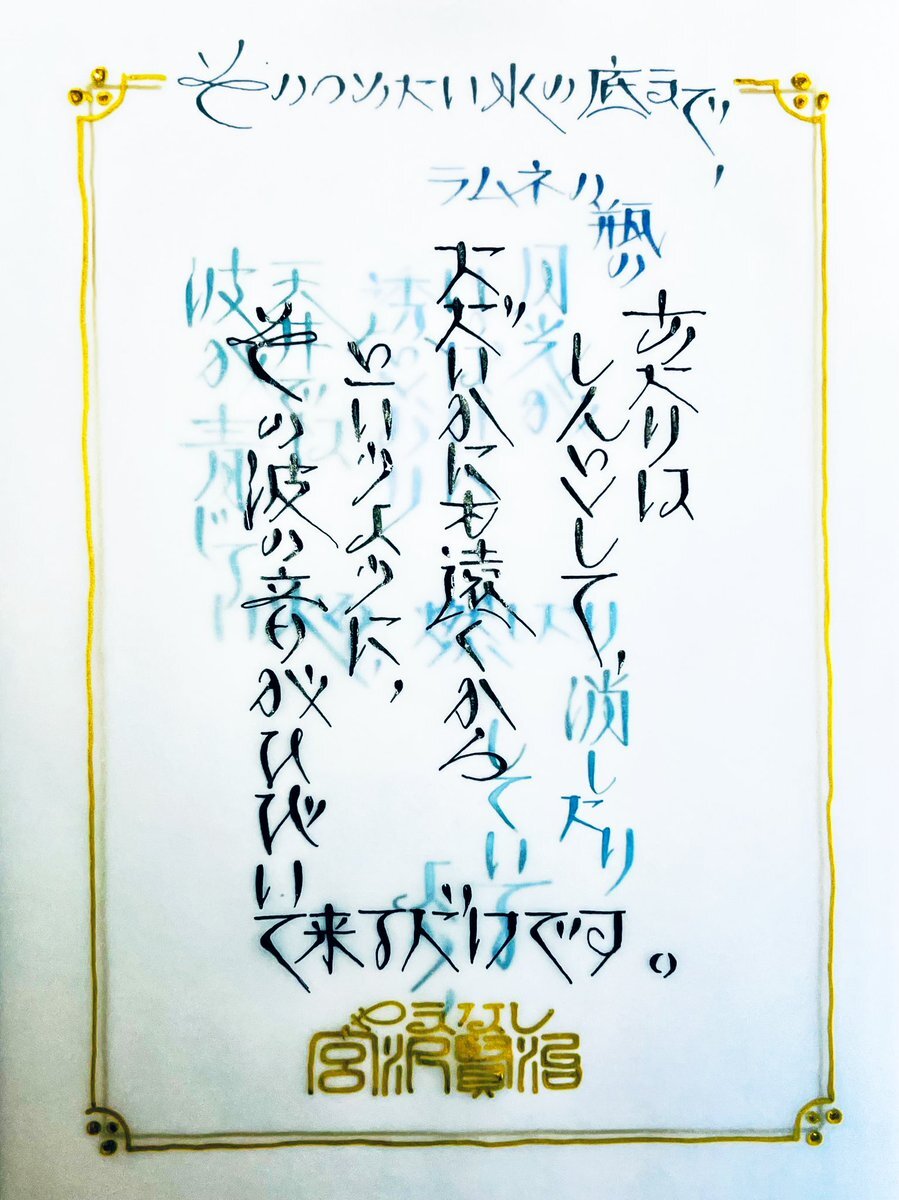 そのつめたい水の底まで、
ラムネの瓶の
月光が
天井では
波が青じろい
燃したり
消したり
している
よう
あたりは
しんとして、
ただいかにも遠くから
というように、
その波の音がひびいて来るだけです。
やまなし
宮沢賢治